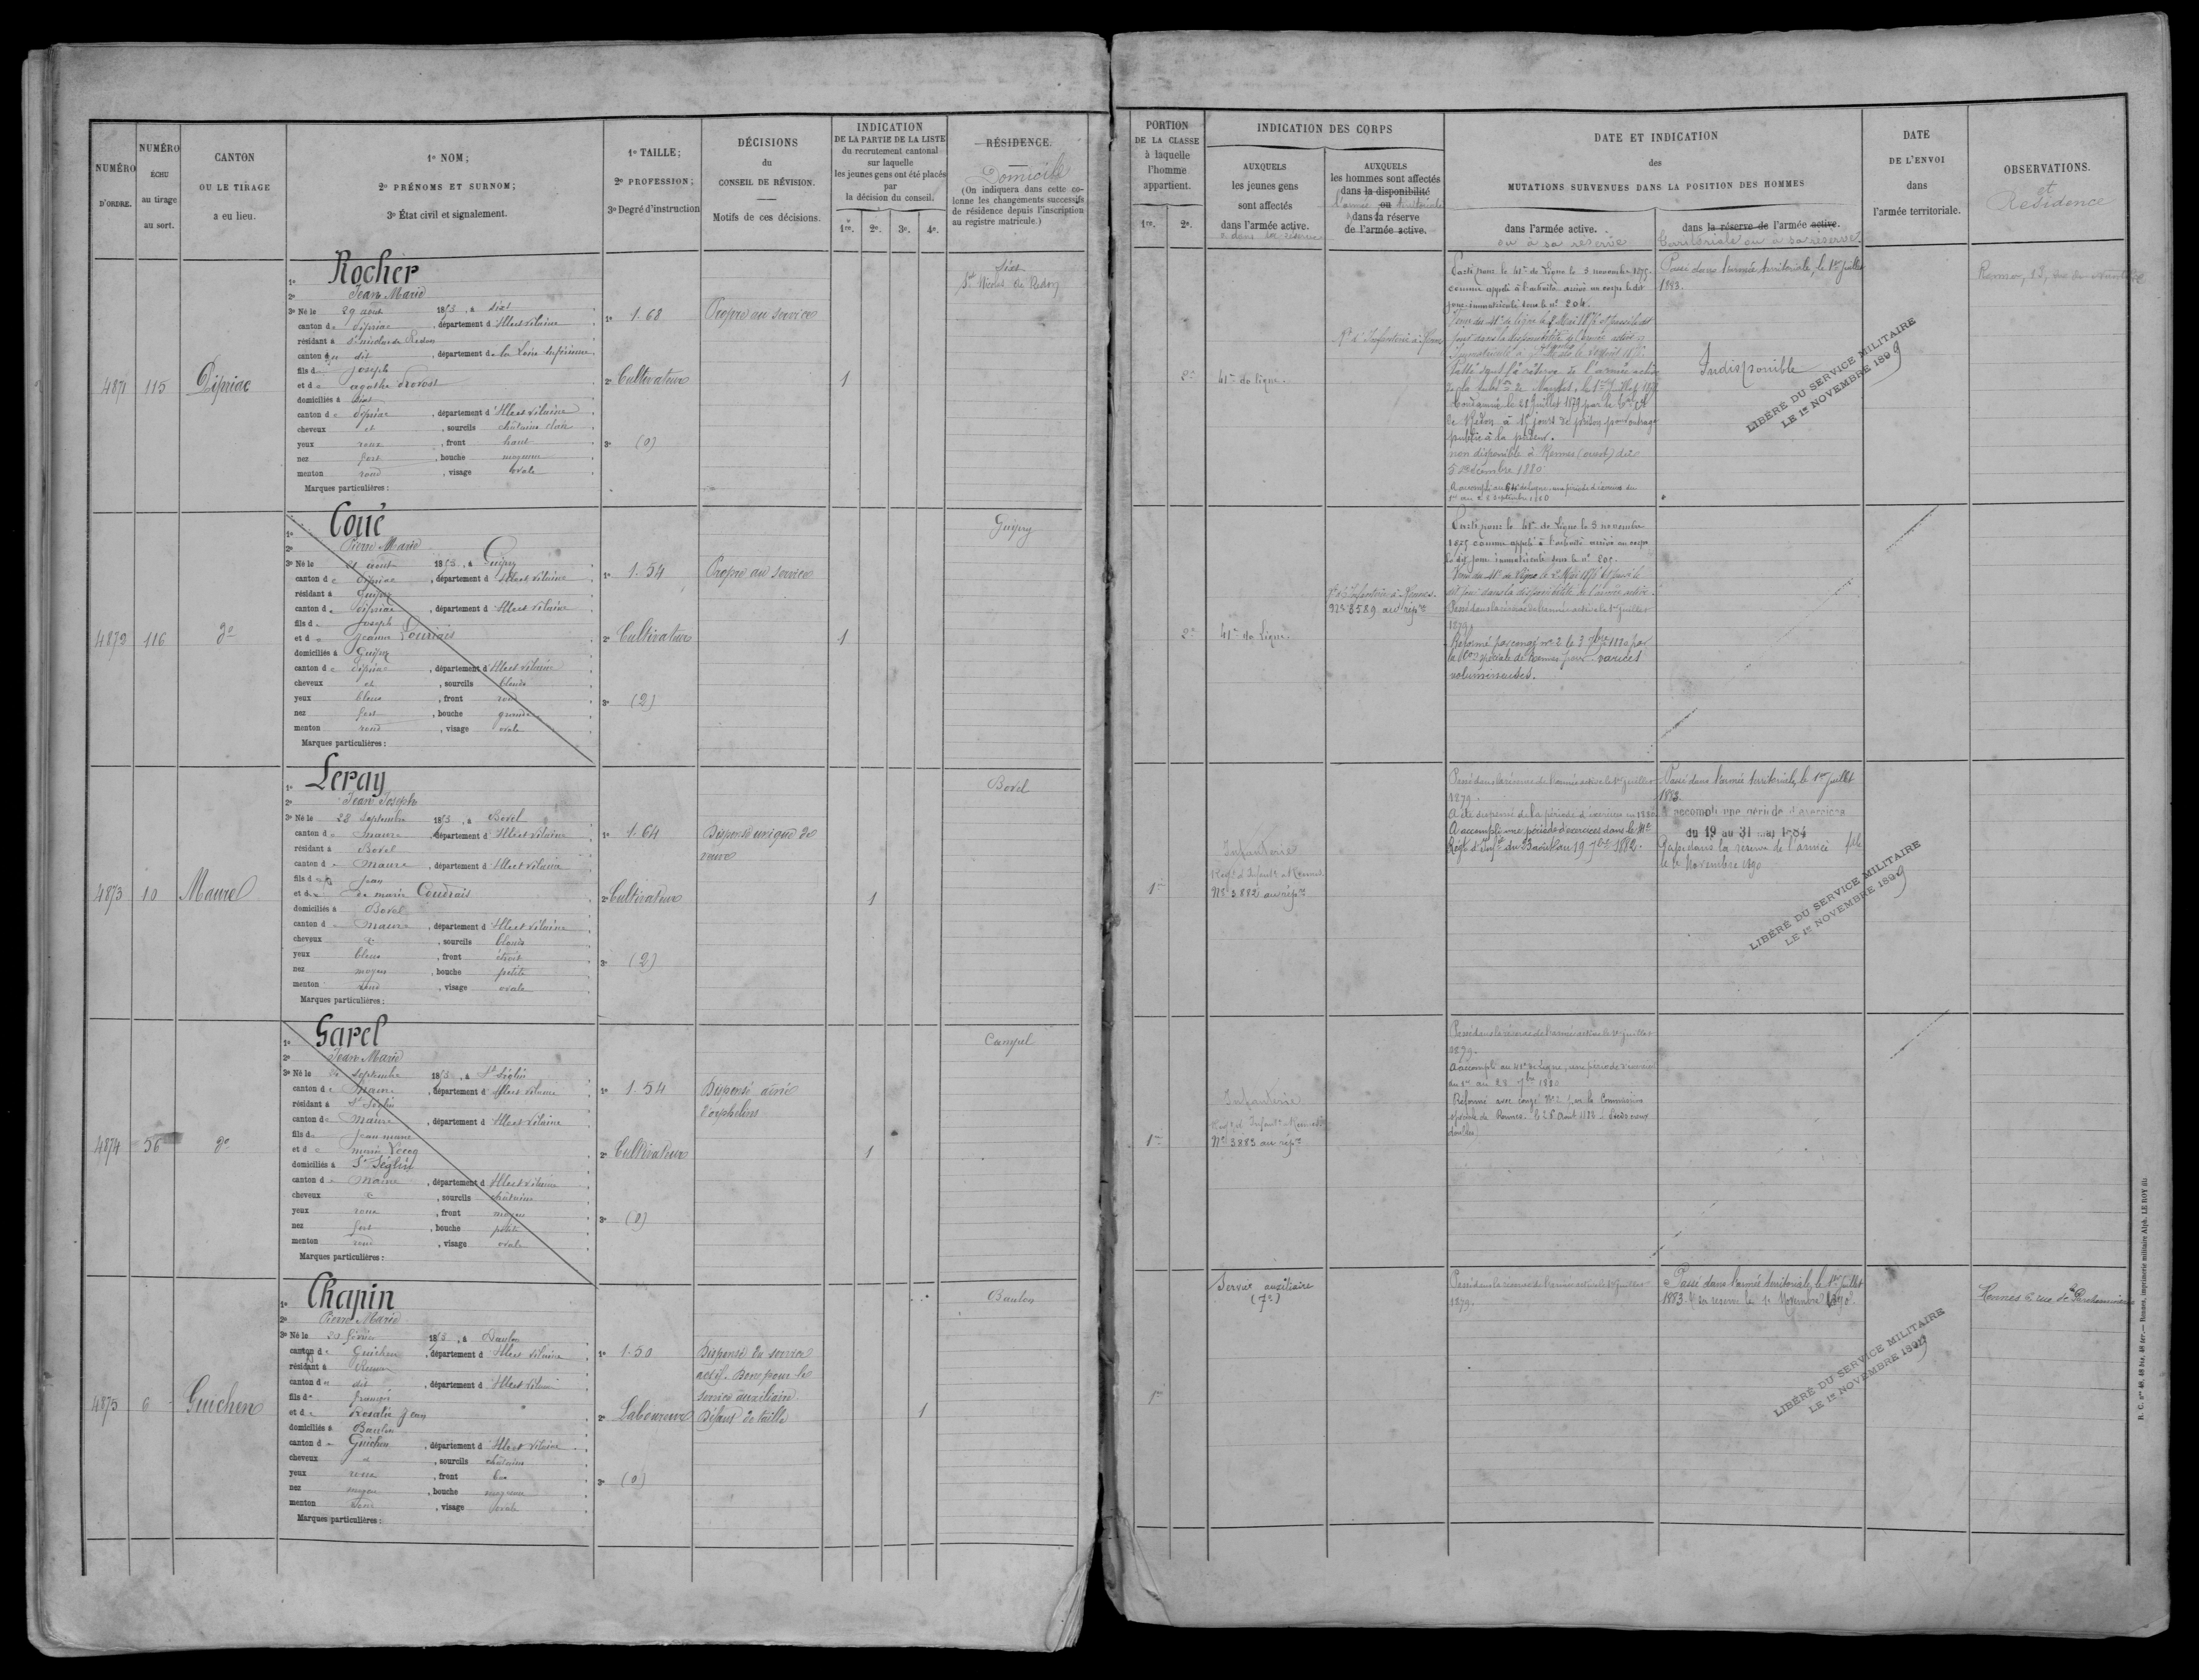 NUMÉRO D'ORDRE.
NUMÉRO ÉCHU au tirage au sort.
CANTON OU LE TIRAGE a eu lieu.
1º NOM;
2º PRÉNOMS ET SURNOM;
3º État civil et signalement.
1º TAILLE;
2º PROFESSION;
3º Degré d'instruction
DÉCISIONS du CONSEIL DE RÉVISION.
Motifs de ces décisions.
INDICATION DE LA PARTIE DE LA LISTE du recrutement cantonal sur laquelle les jeunes gens ont été placés par la décision du conseil.
1re. 2e. 3e. 4e.
RÉSIDENCE.
Domicile
(On indiquera dans cette colonne les changements successifs de résidence depuis l'inscription au registre matricule.)
4871
115
Pipriac
1º Rocher
2º Jean Marie
3º Né le 29 août 1855, à Sixt
canton de Pipriac, département d'Ille et Vilaine
résidant à St Nicolas de Redon
canton du dit, département de la Loire Inférieure
fils de Joseph
et de agathe Provost
domiciliés à Sixt
canton de Pipriac, département d'Ille et Vilaine
cheveux et, sourcils châtains clairs
yeux roux, front haut
nez fort, bouche moyenne
menton rond, visage ovale
Marques particulières:
1º 1.68
2º Cultivateur
3º (0)
Propre au service
1
Sixt
St Nicolas de Redon
4872
116
dº
1º Coué
2º Pierre Marie
3º Né le 21 août 1855, à Guipry
canton de Pipriac, département d'Ille et Vilaine
résidant à Guipry
canton de Pipriac, département d'Ille et Vilaine
fils de Joseph
et de Jeanne Louriais
domiciliés à Guipry
canton de Pipriac, département d'Ille et Vilaine
cheveux et, sourcils blonds
yeux bleus, front rond
nez fort, bouche grande
menton rond, visage ovale
Marques particulières:
1º 1.54
2º Cultivateur
3º (2)
Propre au service
1
Guipry
4873
10
Maure
1º Leray
2º Jean Joseph
3º Né le 28 Septembre 1855, à Bovel
canton de Maure, département d'Ille et Vilaine
résidant à Bovel
canton de Maure, département d'Ille et Vilaine
fils de Jean
et de marie Coudrais
domiciliés à Bovel
canton de Maure, département d'Ille et Vilaine
cheveux &, sourcils blonds
yeux bleus, front étroit
nez moyen, bouche petite
menton rond, visage ovale
Marques particulières:
1º 1.64
2º Cultivateur
3º (2)
Dispensé unique de
veuve
1
Bovel
4874
56
dº
1º Garel
2º Jean Marie
3º Né le septembre 1855, à St Séglin
canton de Maure, département d'Ille et Vilaine
résidant à St Séglin
canton de Maure, département d'Ille et Vilaine
fils de Jean marie
et de marie Lecoq
domiciliés à St Séglin
canton de Maure, département d'Ille et Vilaine
cheveux &, sourcils châtains
yeux roux, front moyen
nez fort, bouche petite
menton rond, visage ovale
Marques particulières:
1º 1.54
2º Cultivateur
3º (0)
Dispensé aîné
d'orphelins
1
Campel
4875
6
Guichen
1º Chapin
2º Pierre Marie
3º Né le février 1855, à Baulon
canton de Guichen, département d'Ille et Vilaine
résidant à Rennes
canton du dit, département d'Ille et Vilaine
fils de François
et de Rosalie Jean
domiciliés à Baulon
canton de Guichen, département d'Ille et Vilaine
cheveux et, sourcils châtains
yeux roux, front bas
nez moyen, bouche moyenne
menton rond, visage ovale
Marques particulières:
1º 1.50
2º Laboureur
3º (0)
Dispensé du service
actif. Bon pour le
service auxiliaire
Défaut de taille
1
Baulon
PORTION DE LA CLASSE à laquelle l'homme appartient.
1re. 2e.
INDICATION DES CORPS
AUXQUELS les jeunes gens sont affectés dans l'armée active.
ou dans la réserve
AUXQUELS les hommes sont affectés dans la disponibilité ou dans la réserve de l'armée active.
l'armée territoriale
DATE ET INDICATION des MUTATIONS SURVENUES DANS LA POSITION DES HOMMES
dans l'armée active.
ou à sa réserve
dans la réserve de l'armée active.
territoriale ou à sa réserve
DATE DE L'ENVOI dans l'armée territoriale.
OBSERVATIONS.
et
Résidence
2e
41e de ligne.
Rt d'Infanterie à Rennes
Parti pour le 41e de Ligne le 5 novembre 1875.
comme appelé à l'activité arrivé au corps le dit
jour immatriculé sous le nº 204.
Passé dans la réserve de l'armée active
Condamné le 28 Juillet 1879 par le
de Redon à 15 jours de prison pour outrage
public à la pudeur.
non disponible à Rennes (ouest) dès
5 décembre 1880
A accompli au 64e de Ligne, une période d'exercices du
Passé dans l'armée territoriale, le 1er Juillet
1883.
Indisponible
LIBÉRÉ DU SERVICE MILITAIRE
LE 1er NOVEMBRE 1899
Rennes, 13, rue de
2e
41e de Ligne.
Rt d'Infanterie à Rennes.
Nº 3589 au répre
Parti pour le 41e de Ligne le 5 novembre
1875 comme appelé à l'activité arrivé au corps
le dit jour immatriculé sous le nº 205.
dit jour dans la disponibilité de l'armée active.
Passé dans la réserve de l'armée active le 1er juillet
1879
Réformé par congé nº 2 le 3 1880 par
la Con spéciale de Rennes pour varices
volumineuses.
1re
Infanterie
Régt d'Infantie à Rennes.
Nº 3882 au répre
Passé dans la réserve de l'armée active le 1er Juillet
1879.
A été dispensé de la période d'exercices en 1880
A accompli une période d'exercices dans le
Régt d'Infie du 23 août au 19 7bre 1882.
Passé dans l'armée territoriale, le 1er Juillet
1883.
A accompli une période d'exercices
du 19 au 31 mai 1884
Passé dans la réserve de l'armée tle
le 1er Novembre 1890
LIBÉRÉ DU SERVICE MILITAIRE
LE 1er NOVEMBRE 1899
1re
Infanterie
Régt d'Infantie à Rennes
Nº 3883 au répre
Passé dans la réserve de l'armée active le 1er juillet
1879.
A accompli au 41e de Ligne, une période d'exercices
du 1er au 28 7bre 1880
Réformé avec congé Nº 2 par la Commission
spéciale de Rennes le 26 Août
1re
Service auxiliaire
(7e)
Passé dans la réserve de l'armée active le 1er juillet
1879.
Passé dans l'armée territoriale, le 1er Juillet
1883. en réserve le 1er Novembre 1890.
LIBÉRÉ DU SERVICE MILITAIRE
LE 1er NOVEMBRE 1899
Rennes 6 rue de la Parcheminerie
R. C. Nos 48, 48 bis, 48 ter. — Rennes, imprimerie militaire Alph. LE ROY fils.